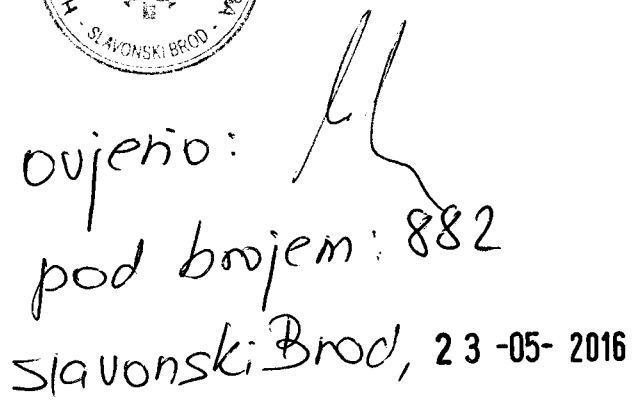 - SLAVONSKI BROD -
ovjerio:
pod brojem: 882
Slavonski Brod, 23 -05- 2016